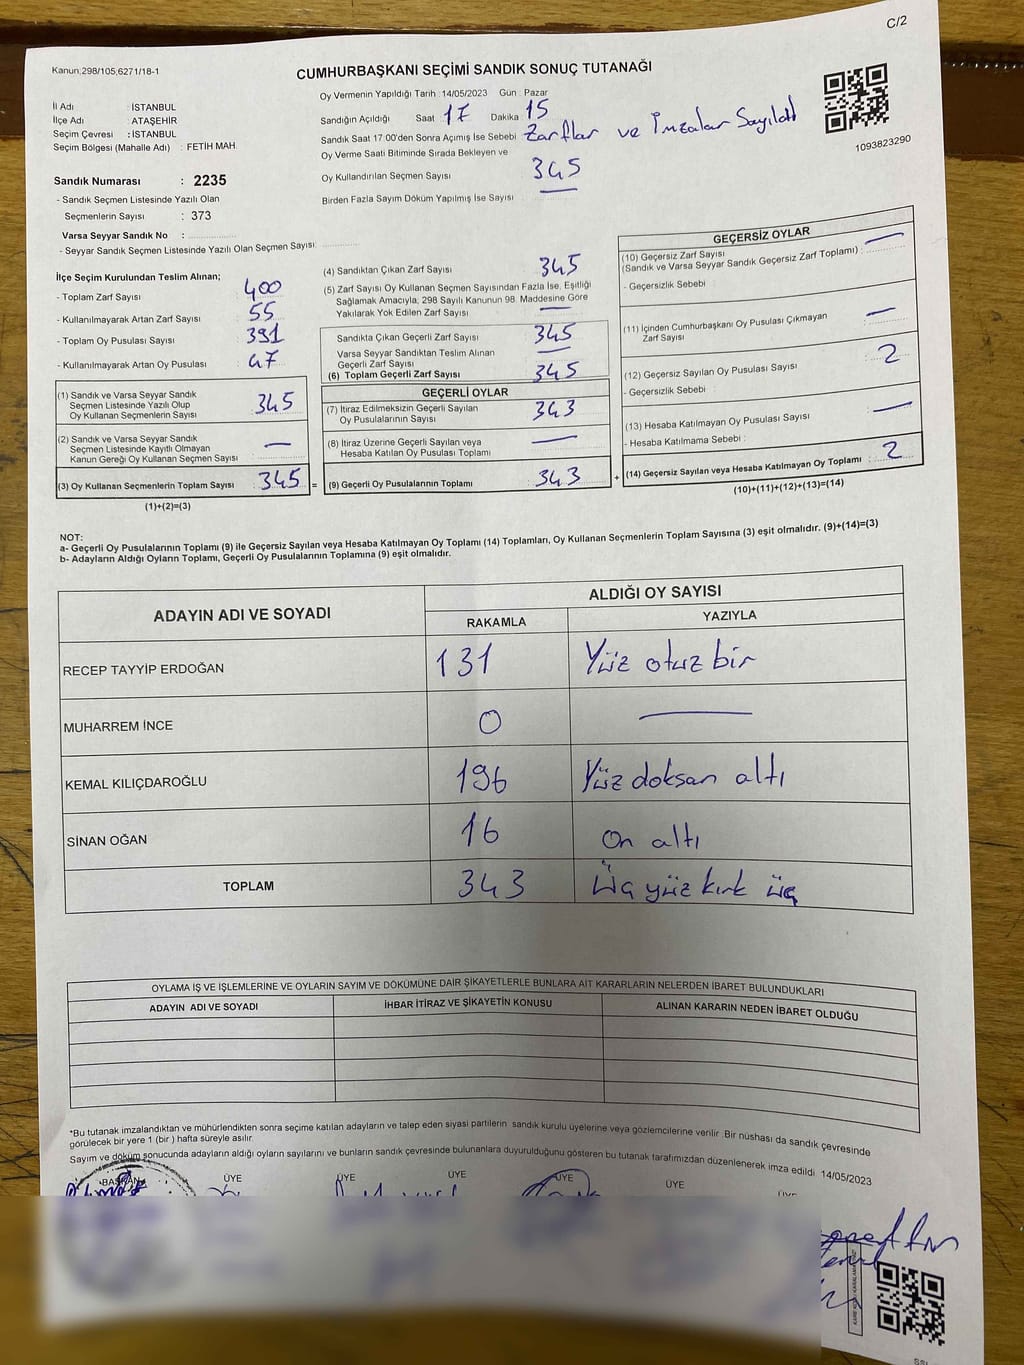 C/2
Kanun;298/105;6271/18-1
CUMHURBAŞKANI SEÇİMİ SANDIK SONUÇ TUTANAĞI
İl Adı : İSTANBUL
İlçe Adı : ATAŞEHİR
Seçim Çevresi : İSTANBUL
Seçim Bölgesi (Mahalle Adı) : FETİH MAH.
Oy Vermenin Yapıldığı Tarih : 14/05/2023 Gün : Pazar
Sandığın Açıldığı Saat 17 Dakika 15
Sandık Saat 17:00'den Sonra Açımış İse Sebebi Zarflar ve İmzalar Sayıldı
Oy Verme Saati Bitiminde Sırada Bekleyen ve
Oy Kullandırılan Seçmen Sayısı 345
Birden Fazla Sayım Döküm Yapılmış İse Sayısı
1093823290
Sandık Numarası : 2235
- Sandık Seçmen Listesinde Yazılı Olan
Seçmenlerin Sayısı : 373
Varsa Seyyar Sandık No :
- Seyyar Sandık Seçmen Listesinde Yazılı Olan Seçmen Sayısı:
İlçe Seçim Kurulundan Teslim Alınan;
- Toplam Zarf Sayısı : 400
- Kullanılmayarak Artan Zarf Sayısı : 55
- Toplam Oy Pusulası Sayısı : 391
- Kullanılmayarak Artan Oy Pusulası : 47
(1) Sandık ve Varsa Seyyar Sandık
Seçmen Listesinde Yazılı Olup
Oy Kullanan Seçmenlerin Sayısı : 345
(2) Sandık ve Varsa Seyyar Sandık
Seçmen Listesinde Kayıtlı Olmayan
Kanun Gereği Oy Kullanan Seçmen Sayısı : —
(3) Oy Kullanan Seçmenlerin Toplam Sayısı : 345 =
(1)+(2)=(3)
(4) Sandıktan Çıkan Zarf Sayısı : 345
(5) Zarf Sayısı Oy Kullanan Seçmen Sayısından Fazla İse, Eşitliği
Sağlamak Amacıyla, 298 Sayılı Kanunun 98. Maddesine Göre
Yakılarak Yok Edilen Zarf Sayısı : —
Sandıkta Çıkan Geçerli Zarf Sayısı : 345
Varsa Seyyar Sandıktan Teslim Alınan
Geçerli Zarf Sayısı : —
(6) Toplam Geçerli Zarf Sayısı : 345
GEÇERLİ OYLAR
(7) İtiraz Edilmeksizin Geçerli Sayılan
Oy Pusulalarının Sayısı : 343
(8) İtiraz Üzerine Geçerli Sayılan veya
Hesaba Katılan Oy Pusulası Toplamı : —
(9) Geçerli Oy Pusulalarının Toplamı : 343 +
GEÇERSİZ OYLAR
(10) Geçersiz Zarf Sayısı
(Sandık ve Varsa Seyyar Sandık Geçersiz Zarf Toplamı) : —
- Geçersizlik Sebebi :
(11) İçinden Cumhurbaşkanı Oy Pusulası Çıkmayan
Zarf Sayısı : —
(12) Geçersiz Sayılan Oy Pusulası Sayısı : 2
- Geçersizlik Sebebi :
(13) Hesaba Katılmayan Oy Pusulası Sayısı : —
- Hesaba Katılmama Sebebi :
(14) Geçersiz Sayılan veya Hesaba Katılmayan Oy Toplamı : 2
(10)+(11)+(12)+(13)=(14)
NOT:
a- Geçerli Oy Pusulalarının Toplamı (9) ile Geçersiz Sayılan veya Hesaba Katılmayan Oy Toplamı (14) Toplamları, Oy Kullanan Seçmenlerin Toplam Sayısına (3) eşit olmalıdır. (9)+(14)=(3)
b- Adayların Aldığı Oyların Toplamı, Geçerli Oy Pusulalarının Toplamına (9) eşit olmalıdır.
ADAYIN ADI VE SOYADI
ALDIĞI OY SAYISI
RAKAMLA YAZIYLA
RECEP TAYYİP ERDOĞAN 131 Yüz otuz bir
MUHARREM İNCE 0 —
KEMAL KILIÇDAROĞLU 196 Yüz doksan altı
SİNAN OĞAN 16 On altı
TOPLAM 343 Üç yüz kırk üç
OYLAMA İŞ VE İŞLEMLERİNE VE OYLARIN SAYIM VE DÖKÜMÜNE DAİR ŞİKAYETLERLE BUNLARA AİT KARARLARIN NELERDEN İBARET BULUNDUKLARI
ADAYIN ADI VE SOYADI İHBAR İTİRAZ VE ŞİKAYETİN KONUSU ALINAN KARARIN NEDEN İBARET OLDUĞU
*Bu tutanak imzalandıktan ve mühürlendikten sonra seçime katılan adayların ve talep eden siyasi partilerin sandık kurulu üyelerine veya gözlemcilerine verilir. Bir nüshası da sandık çevresinde
görülecek bir yere 1 (bir ) hafta süreyle asılır.
Sayım ve döküm sonucunda adayların aldığı oyların sayılarını ve bunların sandık çevresinde bulunanlara duyurulduğunu gösteren bu tutanak tarafımızdan düzenlenerek imza edildi. 14/05/2023
BAŞKAN ÜYE ÜYE ÜYE ÜYE ÜYE ÜYE